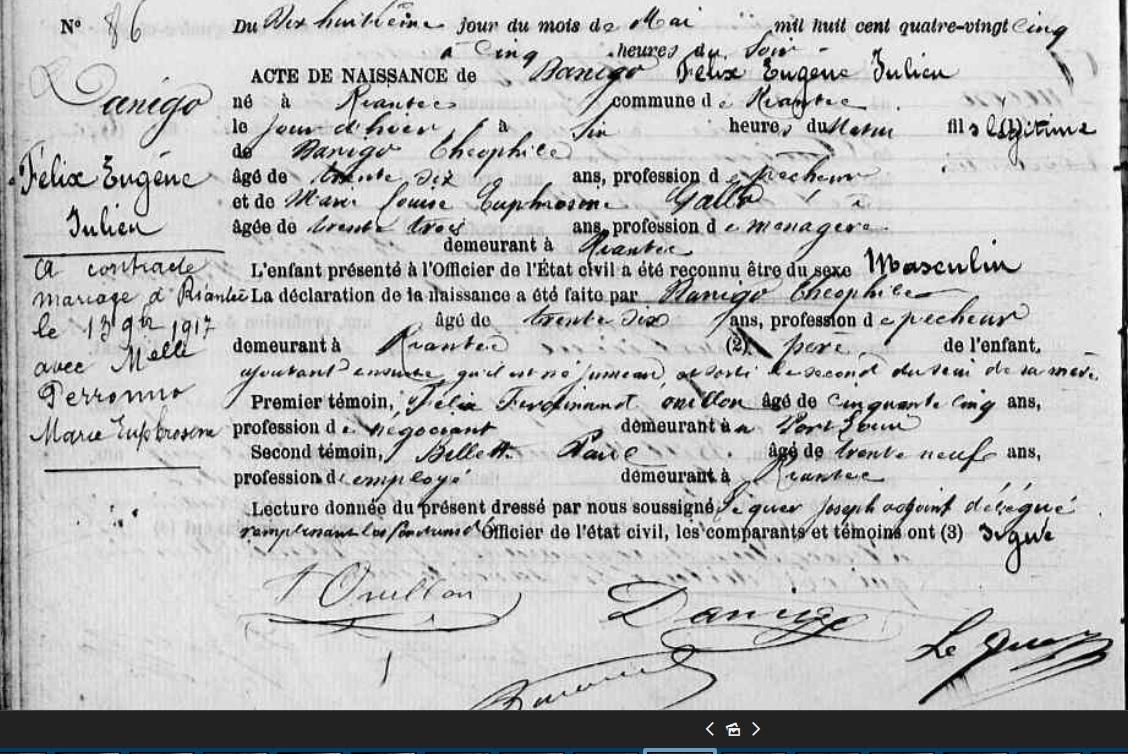 N° 86
Du Dix huitième jour du mois de Mai mil huit cent quatre-vingt cinq
à Cinq heures du Soir
ACTE DE NAISSANCE de Danigo Félix Eugène Julien
né à Riantec commune de Riantec
le jour d'hier à Six heures du Matin fils légitime
de Danigo Théophile
âgé de trente six ans, profession de pêcheur
et de Marie Louise Euphrosine Gallo
âgée de trente trois ans, profession de menagère
demeurant à Riantec
L'enfant présenté à l'Officier de l'État civil a été reconnu être du sexe Masculin
La déclaration de la naissance a été faite par Danigo Théophile
âgé de trente six ans, profession de pecheur
demeurant à Riantec (2) père de l'enfant.
ajoutant ensuite qu'il est né jumeau, et sorti le second du sein de sa mère.
Premier témoin, Félix Ferdinand ouillon âgé de cinquante cinq ans,
profession de négociant demeurant à Port Louis
Second témoin, Billett âgé de trente neuf ans,
profession d'employé demeurant à Riantec
Lecture donnée du présent dressé par nous soussigné Léquer Joseph adjoint délégué
remplissant les fonctions d'Officier de l'état civil, les comparants et témoins ont (3) signé
Danigo
Félix Eugène
Julien
A contracté
mariage à Riantec
le 13 9bre 1917
avec Melle
Perronno
Marie Euphrosine
F Ouillon
Danigo
Le Quer